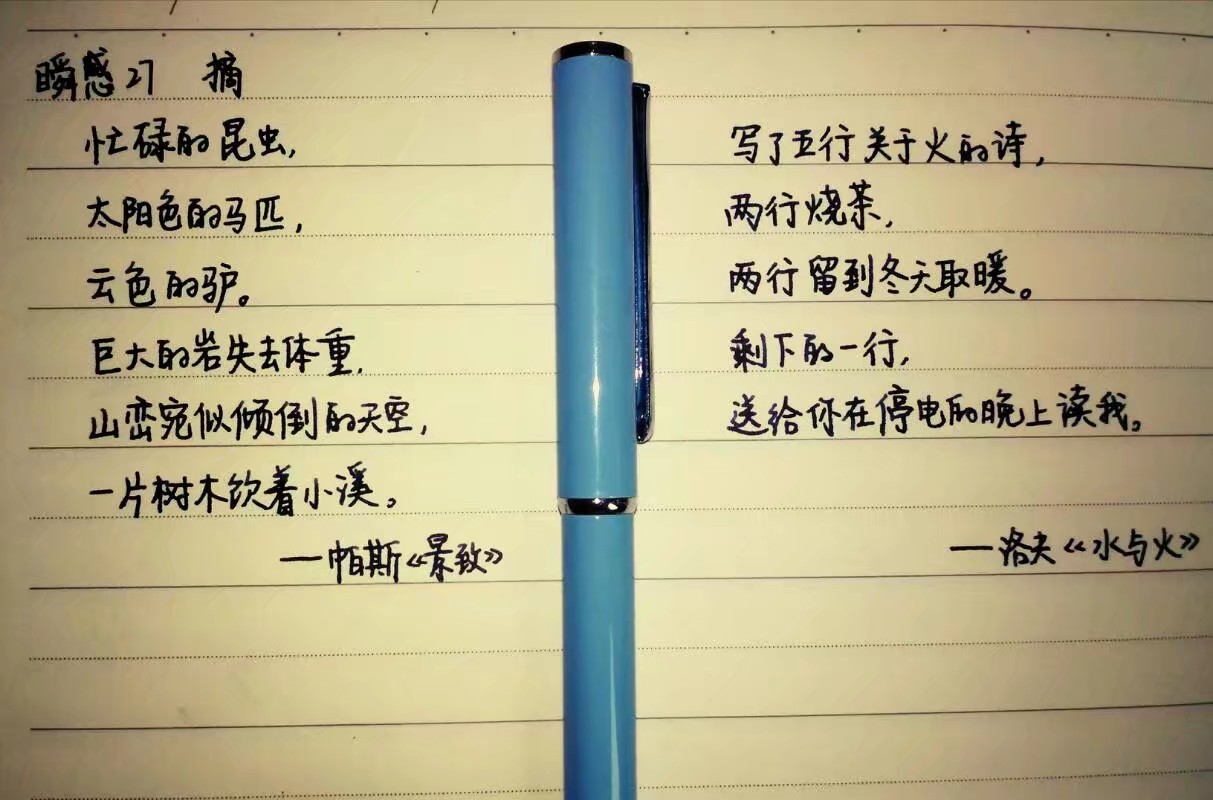 瞬感27 摘
忙碌的昆虫,
太阳色的马匹,
云色的驴。
巨大的岩失去体重,
山峦宛似倾倒的天空,
一片树木饮着小溪。
—帕斯《景致》
写了五行关于火的诗,
两行烧茶,
两行留到冬天取暖。
剩下的一行,
送给你在停电的晚上读我。
—洛夫《水与火》